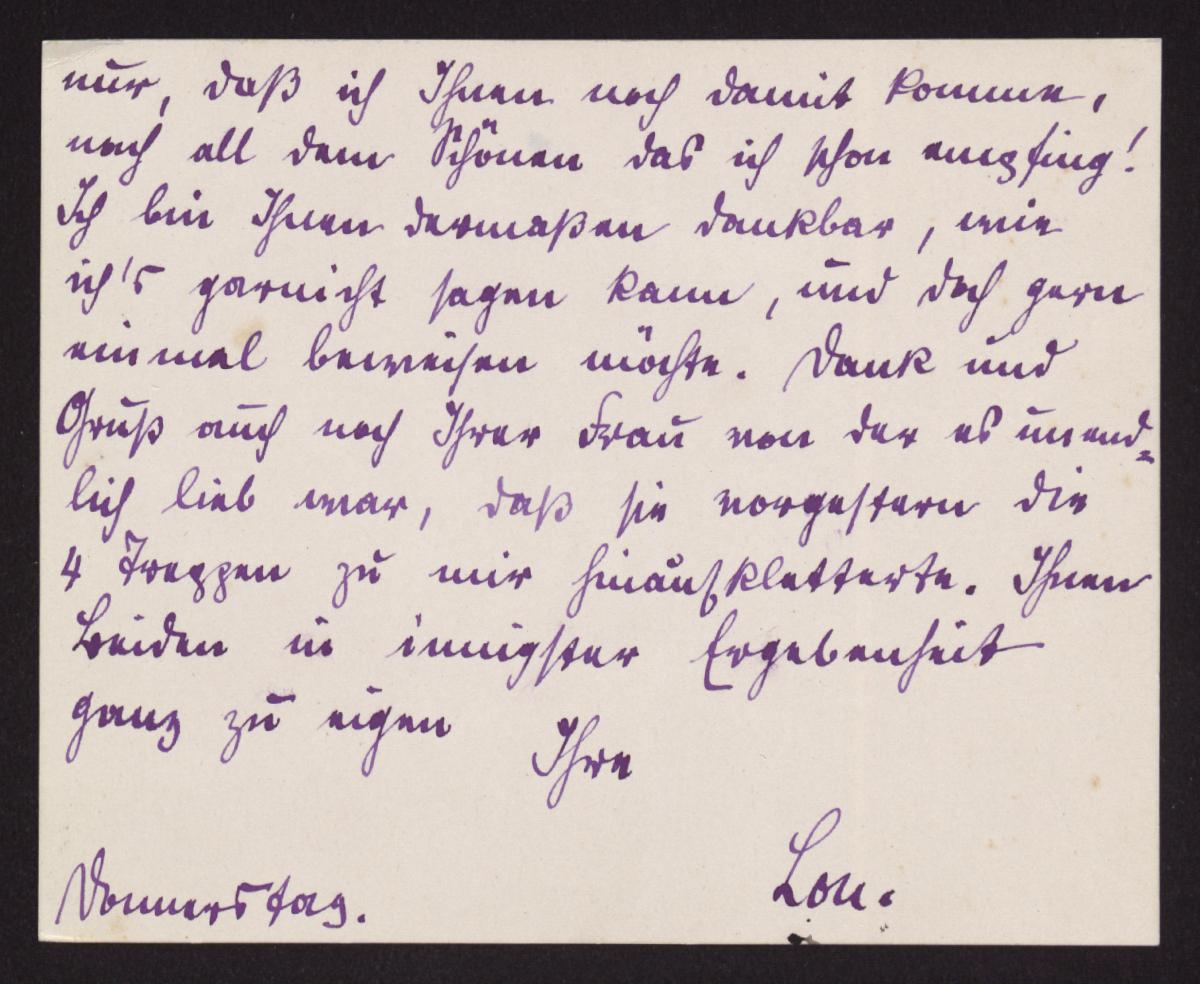 nur, daß ich Ihnen noch damit komme,
nach all dem Schönen das ich schon empfing!
Ich bin Ihnen dermaßen dankbar, wie
ich's garnicht sagen kann, und doch gern
einmal beweisen möchte. Dank und
Gruß auch noch Ihrer Frau von der es unend=
lich lieb war, daß sie vorgestern die
4 Treppen zu mir hinaufkletterte. Ihnen
Beiden in innigster Ergebenheit
ganz zu eigen
Ihre
Lou.
Donnerstag.